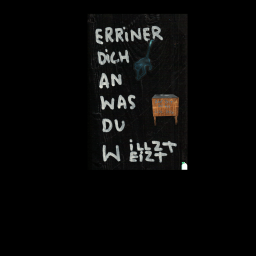 ERRINER
DiCH
AN
WAS
DU
W iLLZT
EiZT